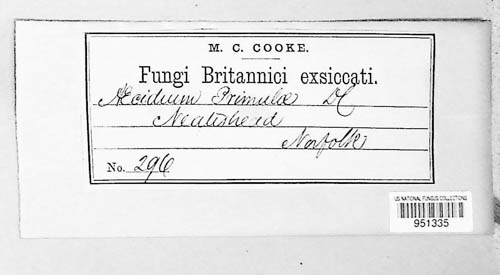 M. C. COOKE.
Fungi Britannici exsiccati.
Æcidium Primulæ DC
Neatishead
Norfolk
No. 296
US NATIONAL FUNGUS COLLECTIONS
951335